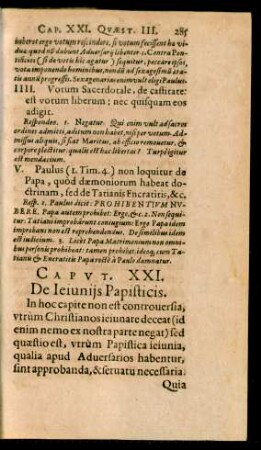 CAP. XXI. QVÆST. III. 285
iuberet ergo votum rescindere, si votum fecissent hæ viduæ:
quod nõ dabunt Adversarij libenter. 2. Contra Pontificios
(si de votis hîc agatur) sequitur, peccare ipsos,
vota imponendo hominibus, nondũ ad sexagesimũ ætatis
annũ progressis. Sexagenariam enim vult eligi Paulus.
IIII. Votum Sacerdotale, de castitate:
est votum liberum; nec quisquam eos
adigit.
Respondeo. 1. Negatur. Qui enim vult ad sacros
ordines admitti, aditum non habet, nisi per votum.
Admissus aliquis, si fiat Maritus, ab officio removetur, &
corpore plectitur: qualis est hæc libertas? Turpē
igitur est mendacium.
V. Paulus (1. Tim. 4.) non loquitur de
Papa, quòd dæmoniorum habeat doctrinam,
sed de Tatianis Encratitis, &c.
Resp. 1. Paulus dicit: PROHIBENTIVM NVBERE.
Papa autem prohibet: Ergo, &c. 2. Non sequitur.
Tatiani improbârunt coniugium: Ergo Papa idem
improbans non est reprehendendus. De similibus idem
est iudicium. 3. Licet Papa Matrimonium non omnibus
personis prohibeat: tamen prohibet idem, cum Tatianis
& Encratitis Papa rectè à Paulo damnatur.
CAPVT. XXI.
De Ieiunijs Papisticis.
In hoc capite non est controversia,
vtrùm Christianos ieiunare deceat (id
enim nemo ex nostra parte negat) sed
quæstio est, vtrùm Papistica ieiunia,
qualia apud Adversarios habentur,
sint approbanda, & servatu necessaria.
Quia